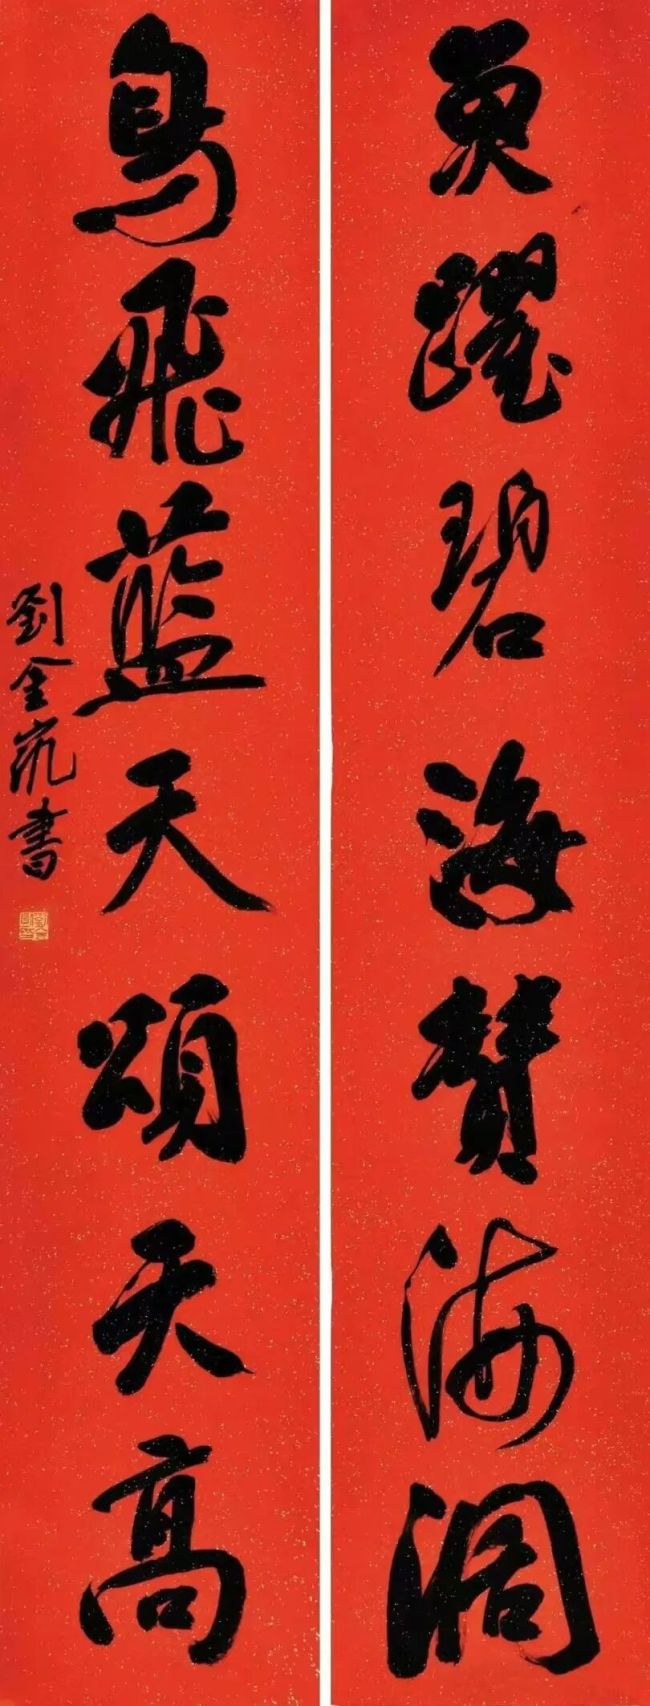 魚躍碧海賛海濶
鳥飛藍天頌天高
劉金凱書